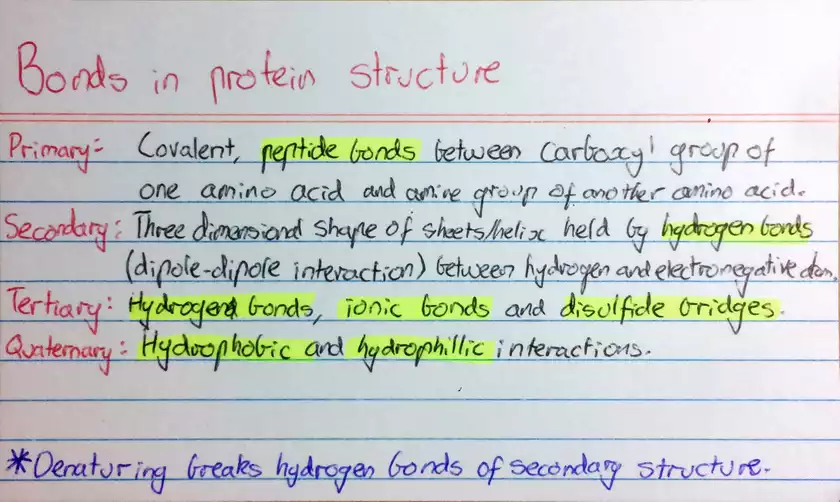 Bonds in protein structure
Primary: Covalent, peptide bonds between Carboxyl group of
one amino acid and amine group of another amino acid.
Secondary: Three dimensional shape of sheets/helix held by hydrogen bonds
(dipole-dipole interaction) between hydrogen and electronegative atom.
Tertiary: Hydrogen bonds, ionic bonds and disulfide bridges.
Quaternary: Hydrophobic and hydrophillic interactions.
*Denaturing breaks hydrogen bonds of secondary structure.